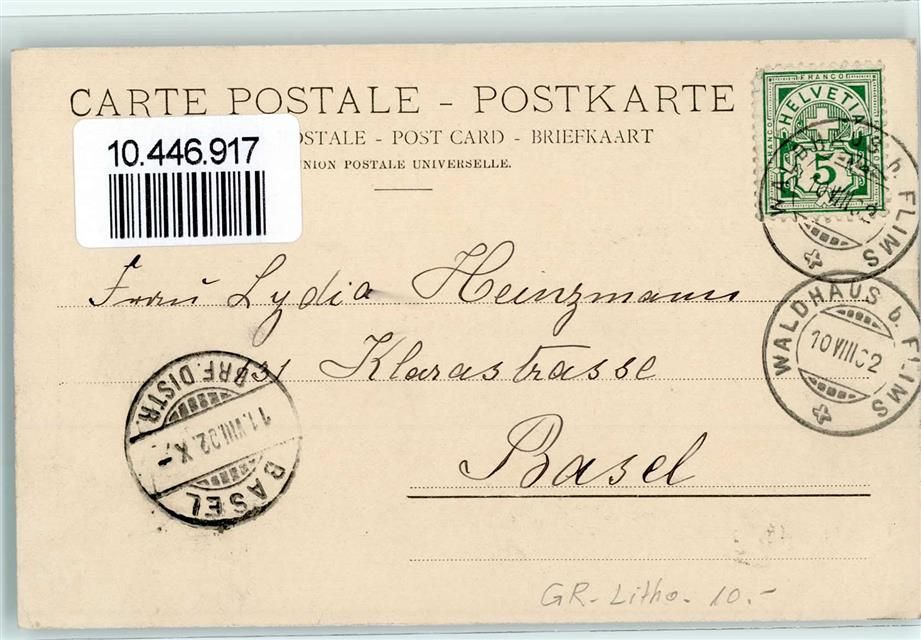 CARTE POSTALE - POSTKARTE
OSTALE - POST CARD - BRIEFKAART
NION POSTALE UNIVERSELLE.
10.446.917
FRANCO
HELVETIA
5
WALDHAUS b. FLIMS
10 VIII 02
WALDHAUS b. FLIMS
10 VIII 02
Frau Lydia Heinzmann
31 Klarastrasse
Basel
BRF. DISTR.
11.VIII.02.X.-
BASEL
GR-Litho. 10.-